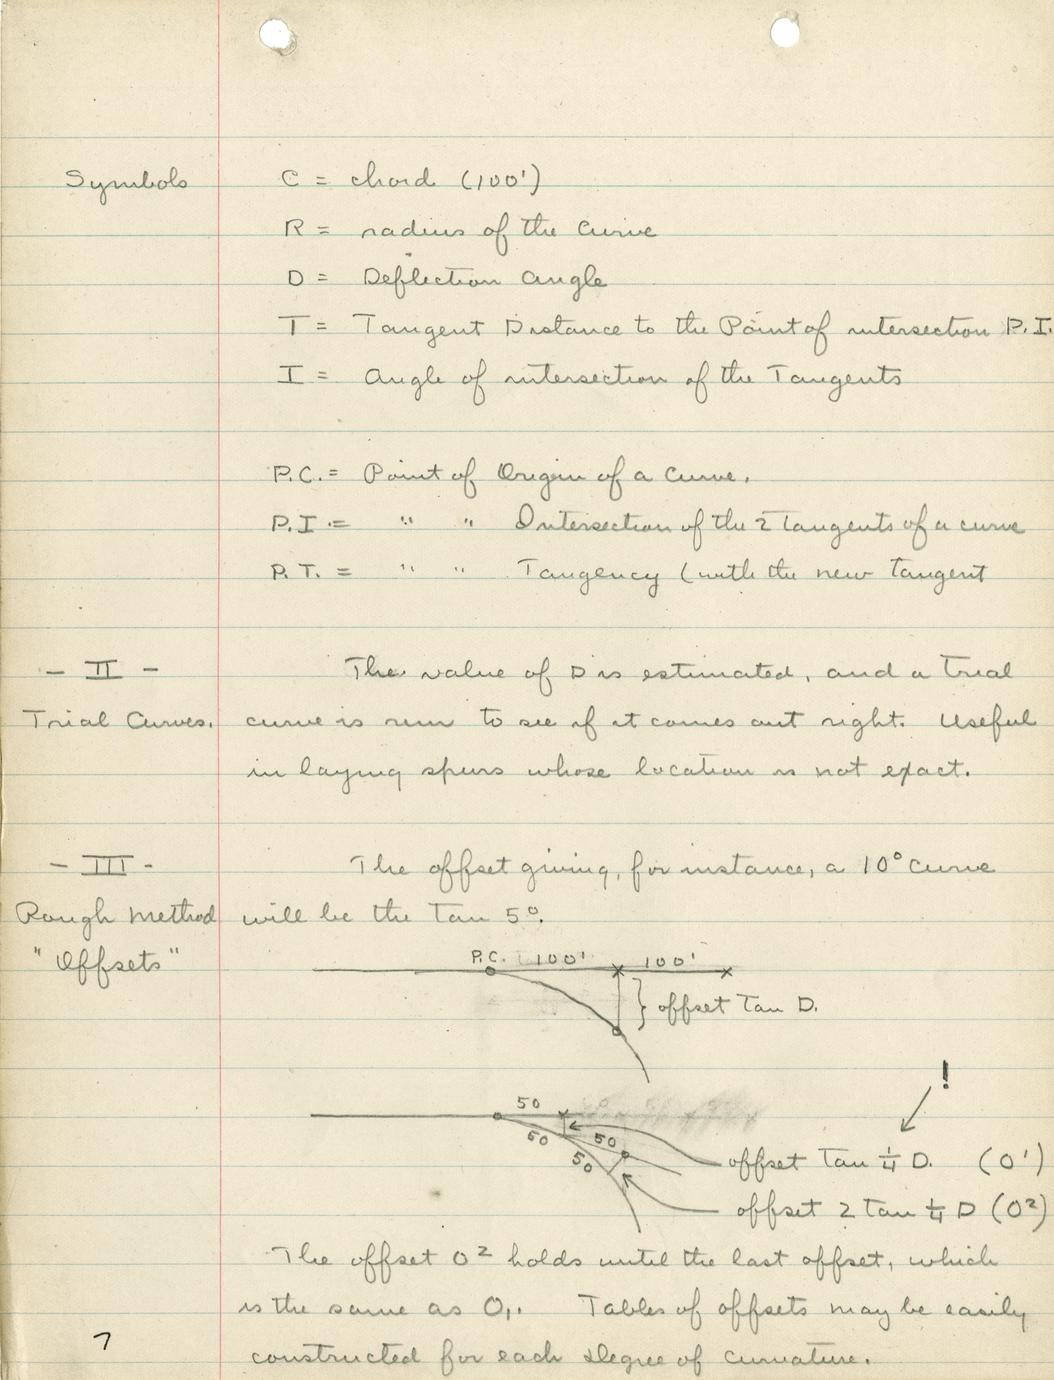 Symbols
C = chord (100')
R = radius of the Curve
D = Deflection Angle
T = Tangent Distance to the Point of intersection P.I.
I = Angle of intersection of the Tangents
P.C. = Point of Origin of a Curve.
P.I. = " " Intersection of the 2 Tangents of a curve
P.T. = " " Tangency (with the new tangent
- II -
Trial Curves.
The value of D is estimated, and a trial
curve is run to see if it comes out right. Useful
in laying spurs whose location is not exact.
- III -
Rough Method
"Offsets"
The offset giving, for instance, a 10° curve
will be the tan 5°.
P.C. 100' 100'
} offset tan D.
!
50
50 50
50
offset tan 1/4 D. (O')
offset 2 tan 1/4 D (O²)
The offset O² holds until the last offset, which
is the same as O,. Tables of offsets may be easily
constructed for each Degree of curvature.
7